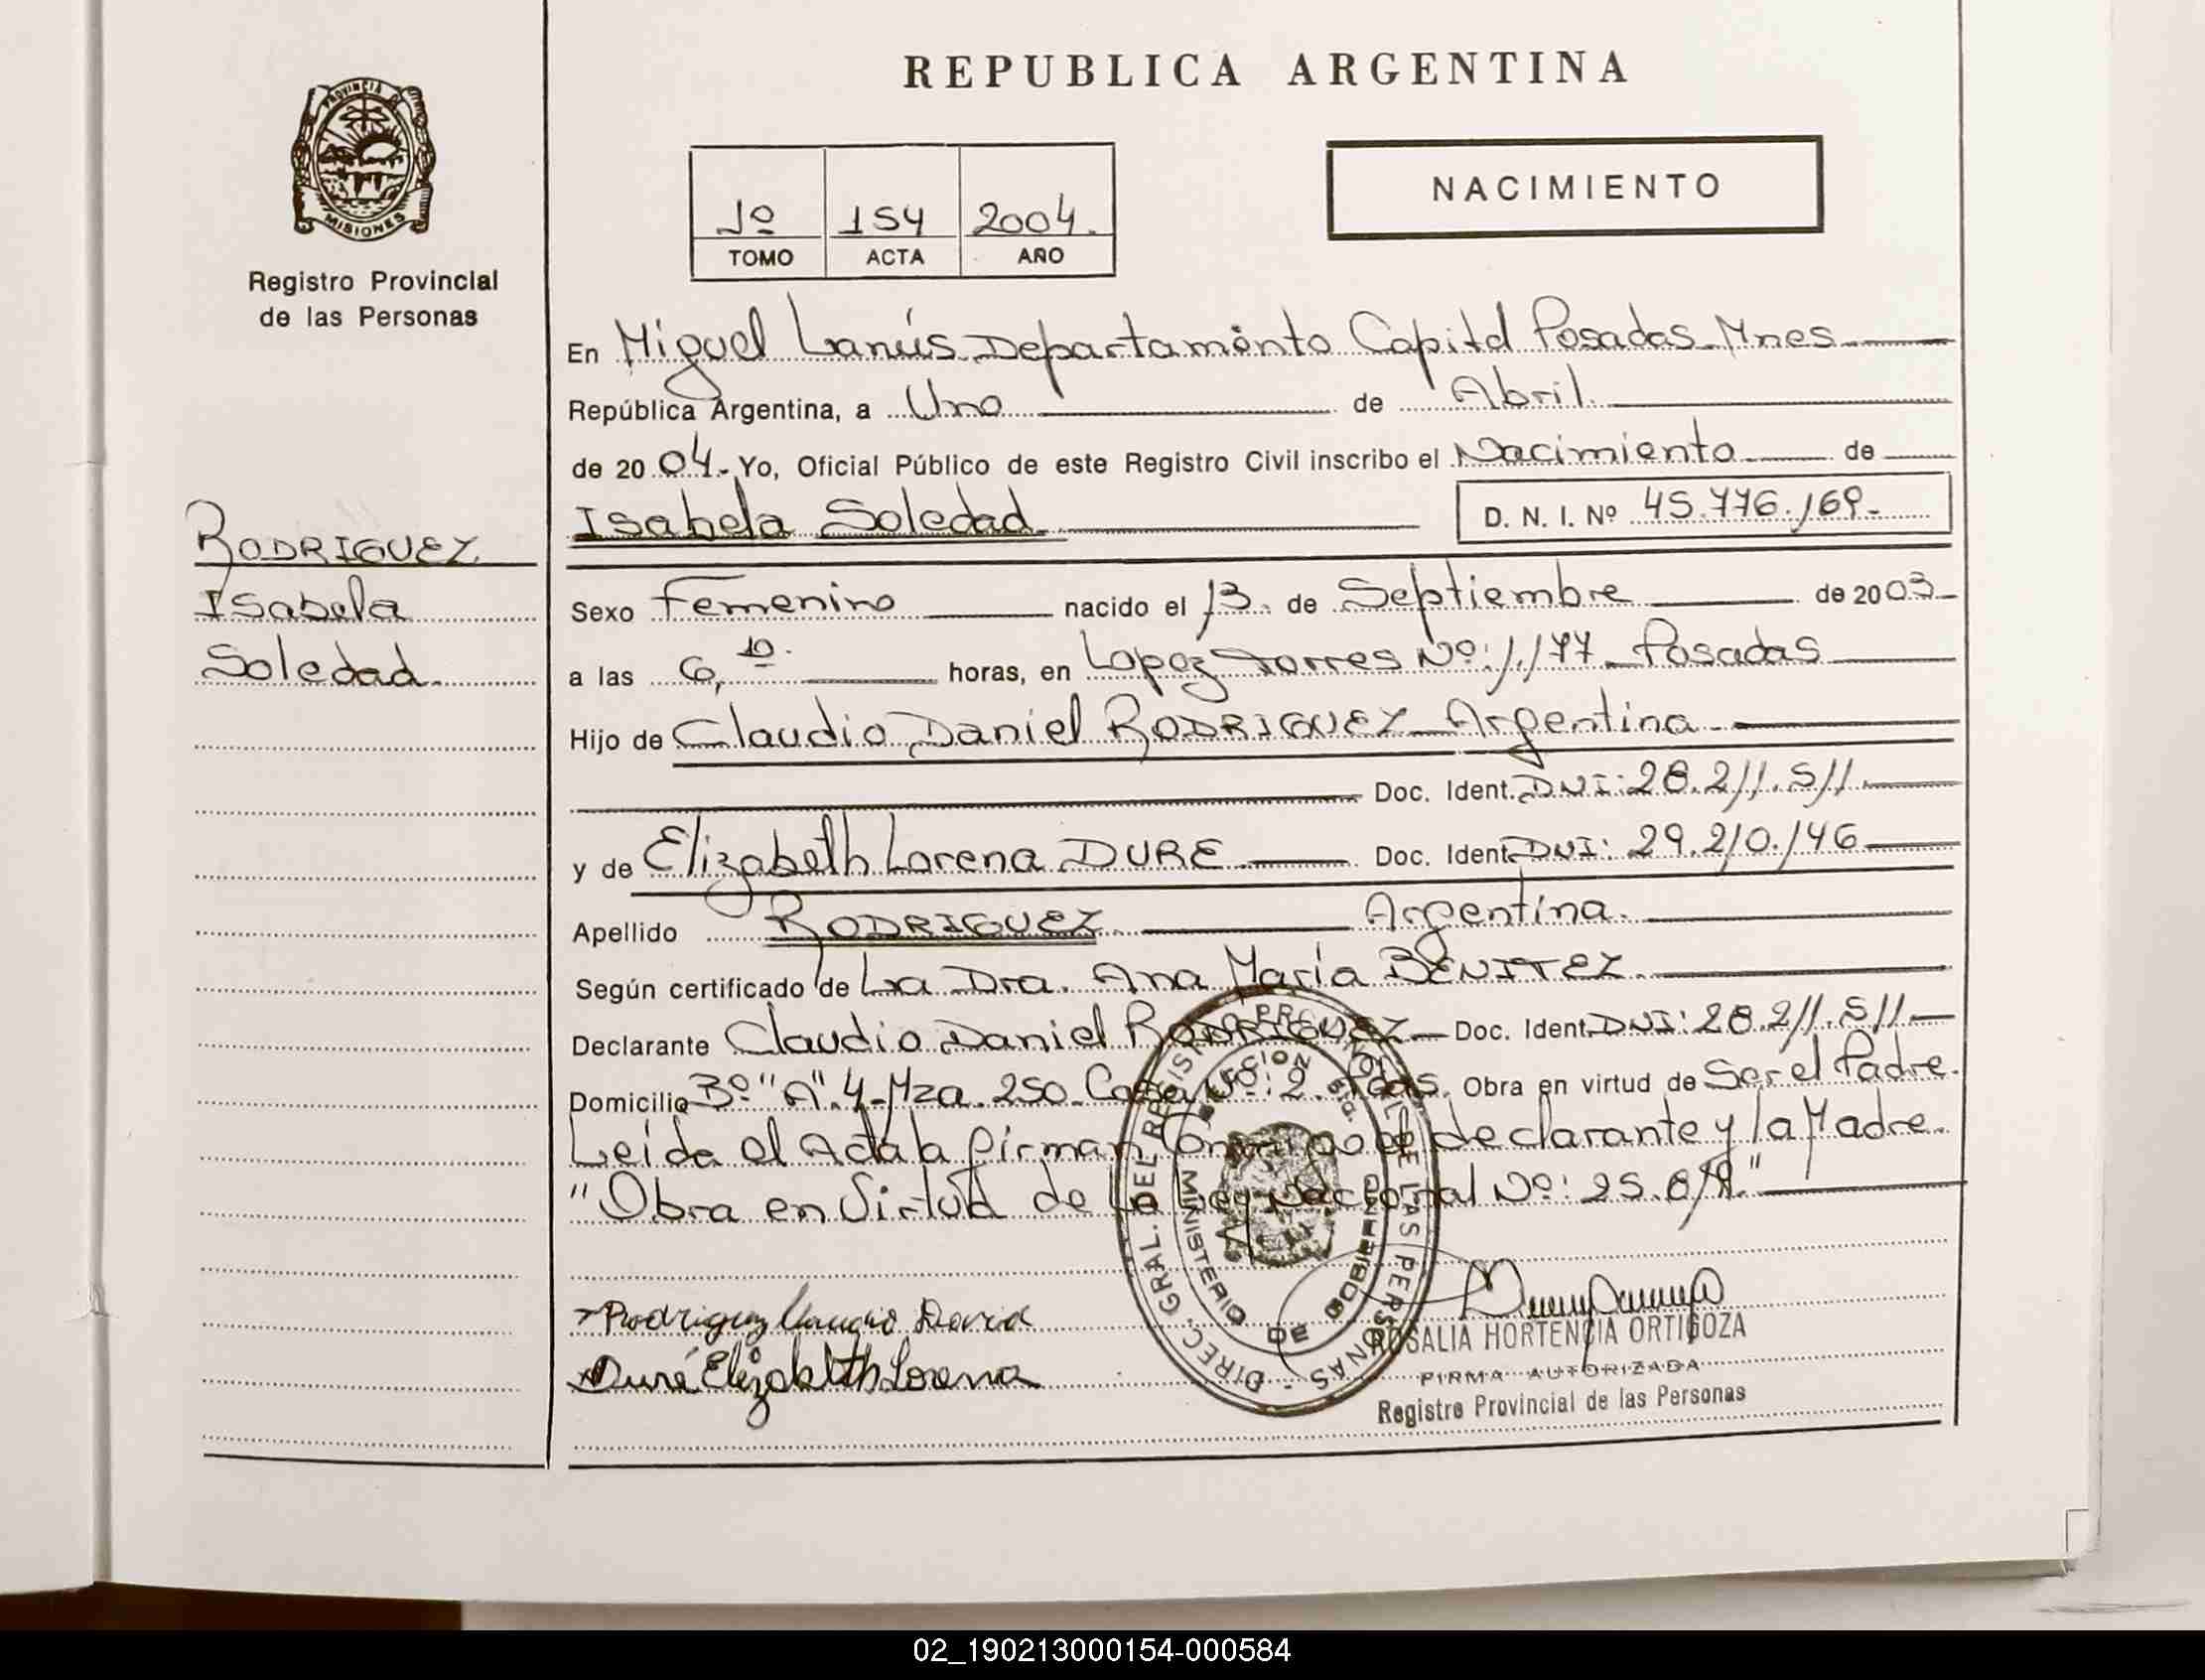 REPUBLICA ARGENTINA
PROVINCIA DE
MISIONES
Registro Provincial
de las Personas
NACIMIENTO
1º 154 2004.
TOMO ACTA AÑO
En Miguel Lanús Departamento Capital Posadas Mnes
República Argentina, a Uno de Abril.
de 20 04. Yo, Oficial Público de este Registro Civil inscribo el Nacimiento de
Isabela Soledad
D. N. I. Nº 45.776.169.-
RODRIGUEZ
Isabela
Soledad.
Sexo Femenino nacido el 13. de Septiembre de 20 03
a las 6,10. horas, en Lopez Torres Nº: 1.177 Posadas
Hijo de Claudio Daniel RODRIGUEZ Argentina
Doc. Ident. DNI: 28.211.511.
y de Elizabeth Lorena DURE Doc. Ident. DNI: 29.210.146
Apellido RODRIGUEZ Argentina.
Según certificado de La Dra. Ana María BENITEZ
Declarante Claudio Daniel RODRIGUEZ Doc. Ident. DNI: 28.211.511
Domicilio Bº "A".4-Mza. 250-Casa Nº: 2. Pdas. Obra en virtud de Ser el Padre.
Leida el Acta la firman Conmigo el declarante y la Madre.
"Obra en Virtud de la Ley Nacional Nº: 25.819."
DIREC. GRAL. DEL REGISTRO PROVINCIAL DE LAS PERSONAS
MINISTERIO DE GOBIERNO
Rodriguez Claudio
Duré Elizabeth Lorena
ROSALIA HORTENCIA ORTIGOZA
FIRMA AUTORIZADA
Registro Provincial de las Personas
02_190213000154-000584